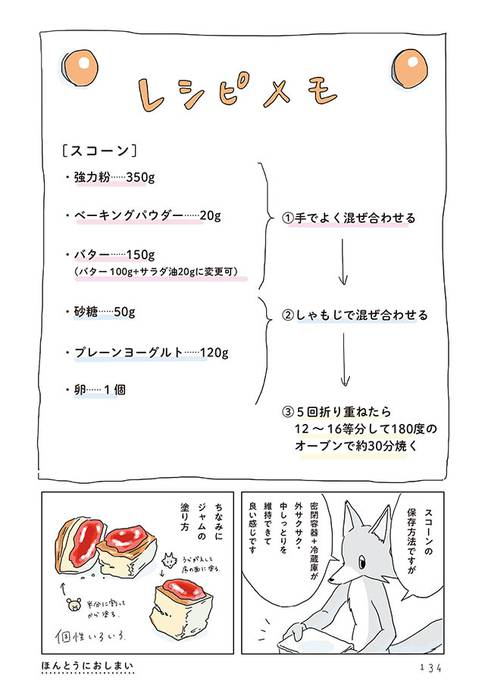 レシピメモ
[スコーン]
・強力粉……350g
・ベーキングパウダー……20g
・バター……150g
（バター100g+サラダ油20gに変更可）
・砂糖……50g
・プレーンヨーグルト……120g
・卵……1個
①手でよく混ぜ合わせる
②しゃもじで混ぜ合わせる
③5回折り重ねたら
12～16等分して180度の
オーブンで約30分焼く
スコーンの
保存方法ですが
密閉容器+冷蔵庫が
外サクサク・
中しっとりを
維持できて
良い感じです
ちなみに
ジャムの
塗り方
半分に割って
から塗る.
個性いろいろ.
ほんとうにおしまい
134